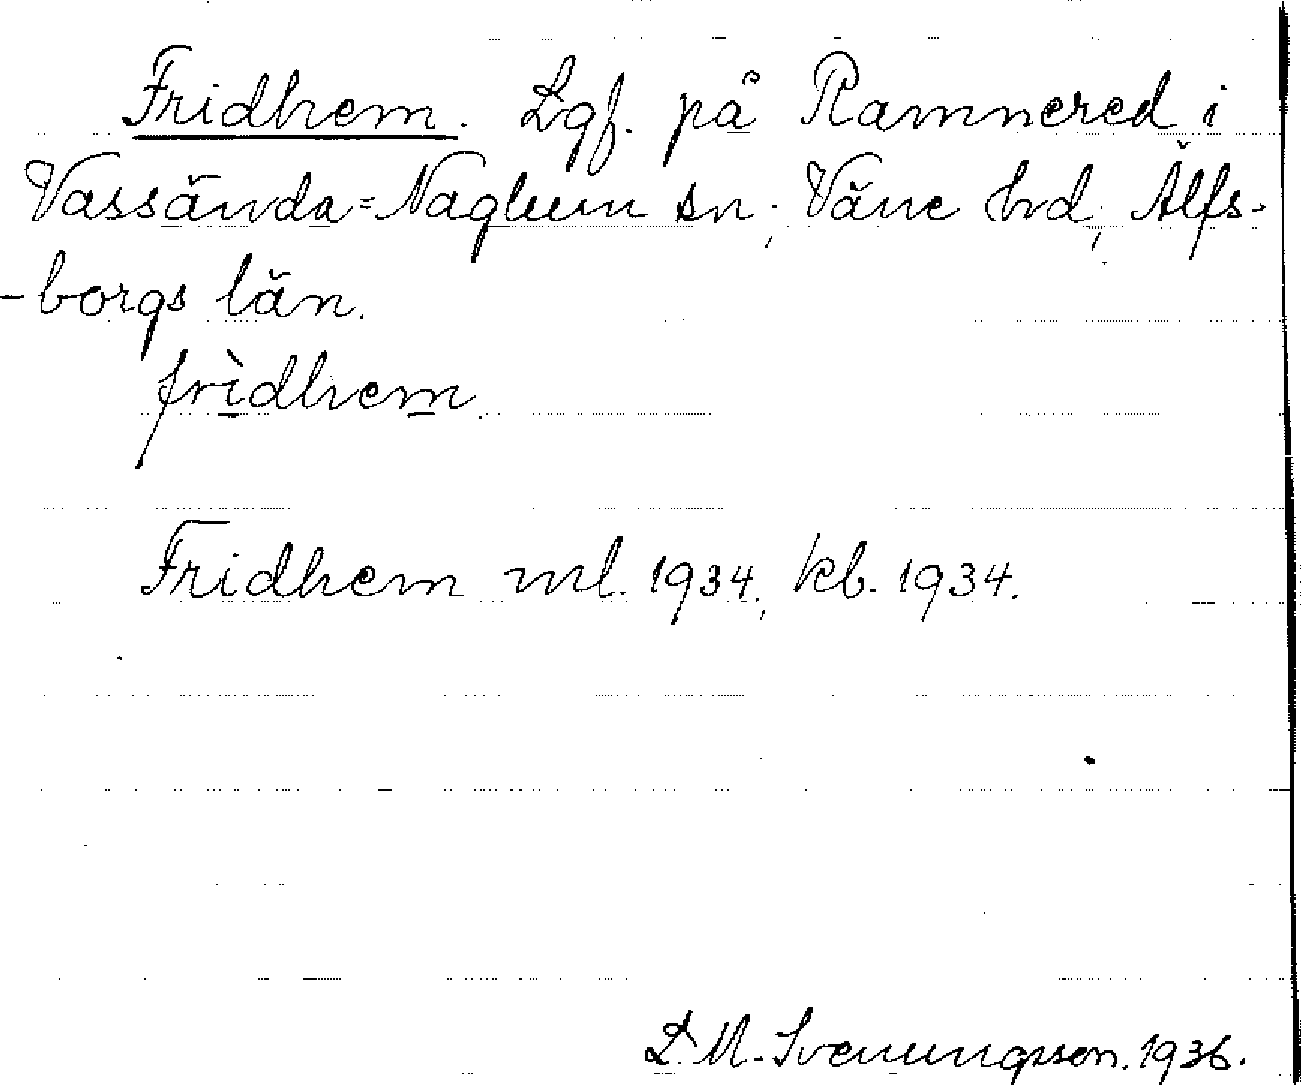 Fridhem. Lgf. på Ramnered i
Vassända=Naglum sn, Väne hd, Älfs-
-borgs län.
frìdhem.
Fridhem ml. 1934, kb. 1934.
D. M. Svenungsson. 1936.